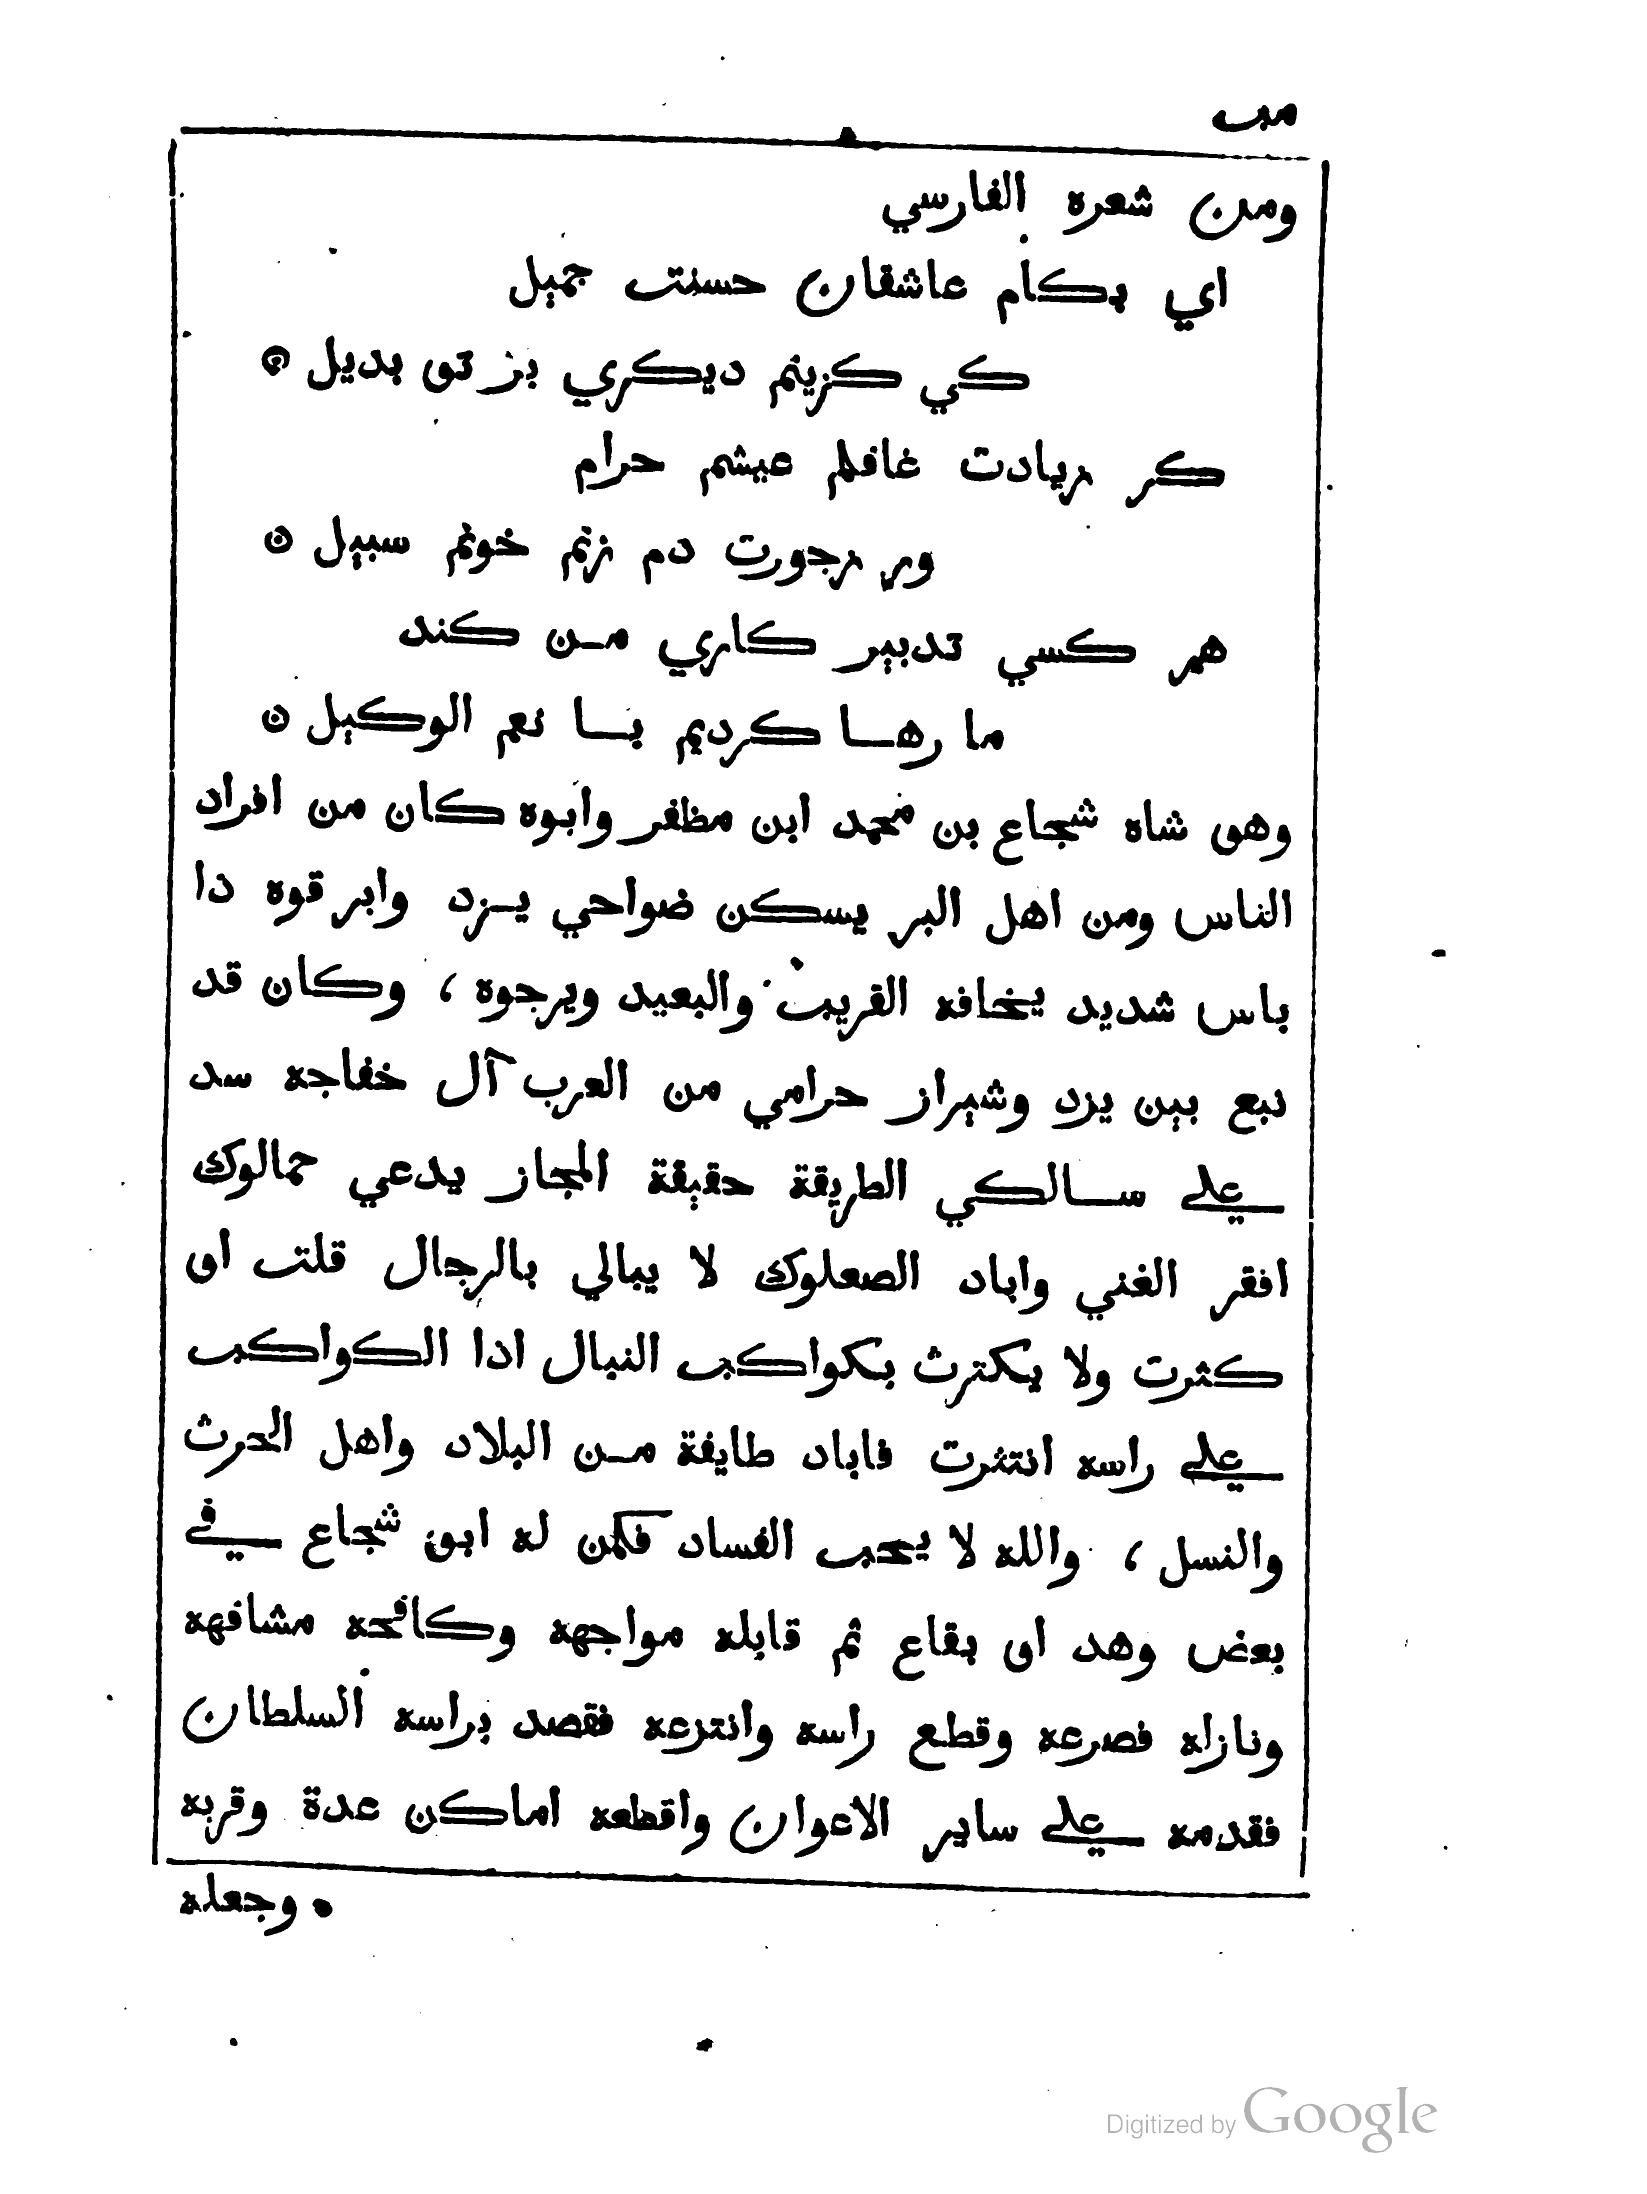 مب
ومن شعره الفارسي
اي بكام عاشقان حسنت جميل
كي كزينم ديكري بز تو بديل
كر زيادت غافلم عيشم حرام
ور زجورت دم زنم خونم سبيل
هر كسي تدبير كاري من كند
ما رها كرديم بسا نعم الوكيل
وهو شاه شجاع بن محمد ابن مظفر وابوه كان من افراد
الناس ومن اهل البر يسكن ضواحي يزد وابرقوه دا
باس شديد يخافه القريب والبعيد ويرجوه ، وكان قد
نبع بين يزد وشيراز حرامي من العرب آل خفاجه سد
علي سالكي الطريقة حقيقة المجاز يدعي حمالوك
افقر الغني واباد الصعلوك لا يبالي بالرجال قلت او
كثرت ولا يكترث بكواكب النبال ادا الكواكب
علي راسه انتثرت فاباد طايفة من البلاد واهل الحرث
والنسل ، والله لا يحب الفساد فكمن له ابو شجاع في
بعض وهد او بقاع ثم قابله مواجهه وكافحه مشافهه
ونازله فصرعه وقطع راسه وانتزعه فقصد براسه السلطان
فقدمه علي ساير الاعوان واقطعه اماكن عدة وقربه
وجعله
Digitized by Google